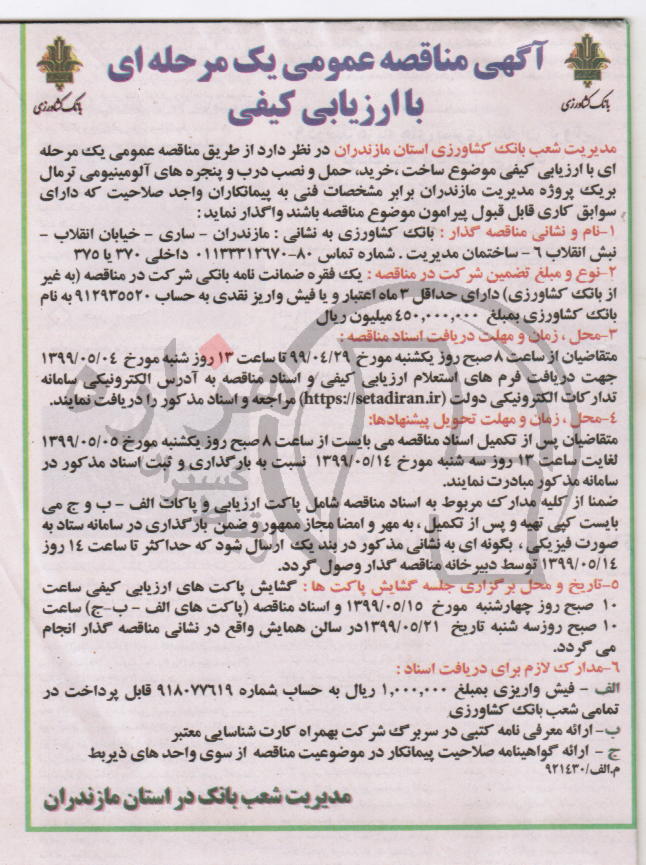 آگهی مناقصه عمومی یک مرحله ای
با ارزیابی کیفی
بانک کشاورزی
بانک کشاورزی
مدیریت شعب بانک کشاورزی استان مازندران در نظر دارد از طریق مناقصه عمومی یک مرحله
ای با ارزیابی کیفی موضوع ساخت ،خرید، حمل و نصب درب و پنجره های آلومینیومی ترمال
بریک پروژه مدیریت مازندران برابر مشخصات فنی به پیمانکاران واجد صلاحیت که دارای
سوابق کاری قابل قبول پیرامون موضوع مناقصه باشند واگذار نماید :
۱-نام و نشانی مناقصه گذار : بانک کشاورزی به نشانی : مازندران - ساری - خیابان انقلاب -
نبش انقلاب ۶ - ساختمان مدیریت . شماره تماس ۸۰-۰۱۱۳۳۳۱۲۶۷۰ داخلی ۳۷۰ یا ۳۷۵
۲-نوع و مبلغ تضمین شرکت در مناقصه : یک فقره ضمانت نامه بانکی شرکت در مناقصه (به غیر
از بانک کشاورزی) دارای حداقل ۳ ماه اعتبار و یا فیش واریز نقدی به حساب ۹۱۲۹۳۵۵۲۰ به نام
بانک کشاورزی بمبلغ ۴۵۰,۰۰۰,۰۰۰ میلیون ریال
۳-محل ، زمان و مهلت دریافت اسناد مناقصه :
متقاضیان از ساعت ۸ صبح روز یکشنبه مورخ ۹۹/۰۴/۲۹ تا ساعت ۱۳ روز شنبه مورخ ۱۳۹۹/۰۵/۰۴
جهت دریافت فرم های استعلام ارزیابی کیفی و اسناد مناقصه به آدرس الکترونیکی سامانه
تدارکات الکترونیکی دولت (https://setadiran.ir) مراجعه و اسناد مذکور را دریافت نمایند.
۴-محل ، زمان و مهلت تحویل پیشنهادها:
متقاضیان پس از تکمیل اسناد مناقصه می بایست از ساعت ۸ صبح روز یکشنبه مورخ ۱۳۹۹/۰۵/۰۵
لغایت ساعت ۱۳ روز سه شنبه مورخ ۱۳۹۹/۰۵/۱۴ نسبت به بارگذاری و ثبت اسناد مذکور در
سامانه مذکور مبادرت نمایند.
ضمنا از کلیه مدارک مربوط به اسناد مناقصه شامل پاکت ارزیابی و پاکات الف - ب و ج می
بایست کپی تهیه و پس از تکمیل ، به مهر و امضا مجاز ممهور و ضمن بارگذاری در سامانه ستاد به
صورت فیزیکی ، بگونه ای به نشانی مذکور در بند یک ارسال شود که حداکثر تا ساعت ۱۴ روز
۱۳۹۹/۰۵/۱۴ توسط دبیرخانه مناقصه گذار وصول گردد.
۵-تاریخ و محل برگزاری جلسه گشایش پاکت ها : گشایش پاکت های ارزیابی کیفی ساعت
۱۰ صبح روز چهارشنبه مورخ ۱۳۹۹/۰۵/۱۵ و اسناد مناقصه (پاکت های الف - ب-ج) ساعت
۱۰ صبح روزسه شنبه تاریخ ۱۳۹۹/۰۵/۲۱در سالن همایش واقع در نشانی مناقصه گذار انجام
می گردد.
۶-مدارک لازم برای دریافت اسناد :
الف - فیش واریزی بمبلغ ۱,۰۰۰,۰۰۰ ریال به حساب شماره ۹۱۸۰۷۷۶۱۹ قابل پرداخت در
تمامی شعب بانک کشاورزی
ب- ارائه معرفی نامه کتبی در سربرگ شرکت بهمراه کارت شناسایی معتبر
ج - ارائه گواهینامه صلاحیت پیمانکار در موضوعیت مناقصه از سوی واحد های ذیربط
م.الف/۹۲۱۴۳۰
مدیریت شعب بانک در استان مازندران